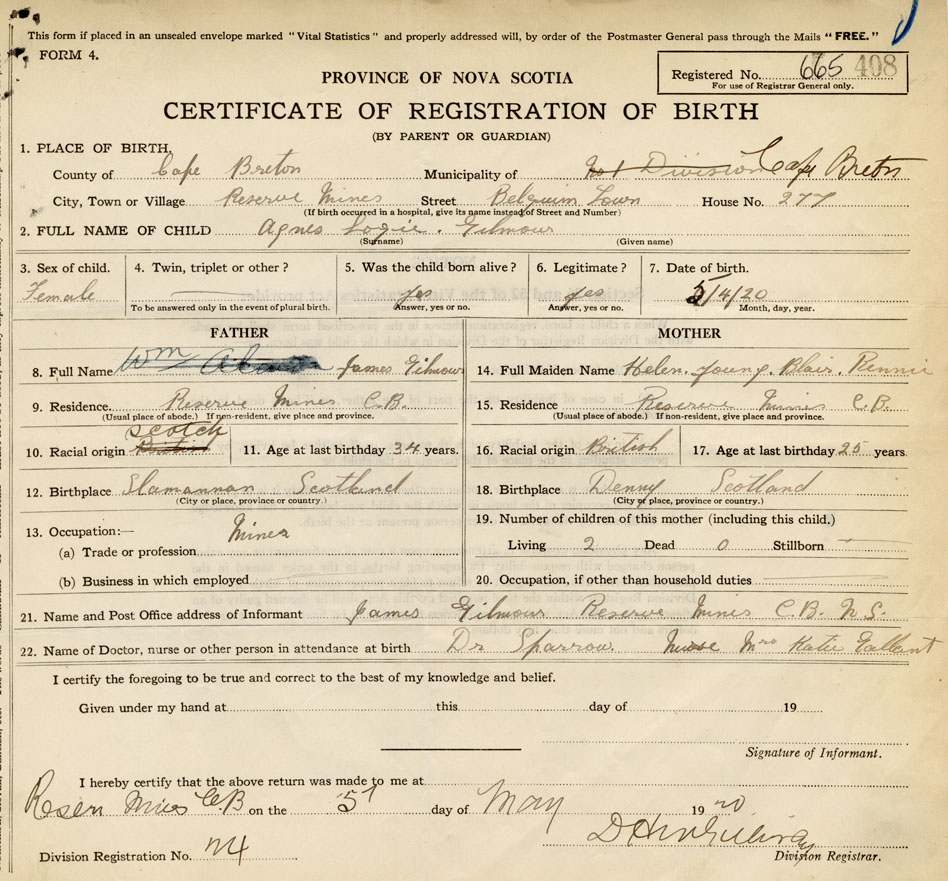 This form if placed in an unsealed envelope marked "Vital Statistics" and properly addressed will, by order of the Postmaster General pass through the Mails "FREE."
FORM 4.
Registered No. 665 408
For use of Registrar General only.
PROVINCE OF NOVA SCOTIA
CERTIFICATE OF REGISTRATION OF BIRTH
(BY PARENT OR GUARDIAN)
1. PLACE OF BIRTH,
County of Cape Breton Municipality of Not Division Cape Breton
City, Town or Village Reserve Mines Street Belguim Town House No. 277
(If birth occurred in a hospital, give its name instead of Street and Number)
2. FULL NAME OF CHILD Agnes Logie. Gilmour
(Surname) (Given name)
3. Sex of child. 4. Twin, triplet or other? 5. Was the child born alive? 6. Legitimate? 7. Date of birth.
Female Yes Yes 5/4/20
To be answered only in the event of plural birth. Answer, yes or no. Answer, yes or no. Month, day, year.
FATHER MOTHER
8. Full Name Wm James Gilmour 14. Full Maiden Name Helen. Young. Blair. Rennie
9. Residence. Reserve Mines C.B. 15. Residence Reserve Mines C.B.
(Usual place of abode.) If non-resident, give place and province. (Usual place of abode.) If non-resident, give place and province.
Scotch
10. Racial origin British 11. Age at last birthday 34 years. 16. Racial origin British 17. Age at last birthday 25 years
12. Birthplace Slamannan Scotland 18. Birthplace Denny Scotland
(City or place, province or country.) (City or place, province or country.)
13. Occupation:— Miner 19. Number of children of this mother (including this child.)
(a) Trade or profession Living 2 Dead 0 Stillborn
(b) Business in which employed 20. Occupation, if other than household duties
21. Name and Post Office address of Informant James Gilmour Reserve Mines C.B. N.S.
22. Name of Doctor, nurse or other person in attendance at birth Dr Sparrow Nurse Mrs Katie Gallant
I certify the foregoing to be true and correct to the best of my knowledge and belief.
Given under my hand at this day of 19
Signature of Informant.
I hereby certify that the above return was made to me at
Reserv Mines C.B on the 5 day of May 1920
Division Registration No. 74 Division Registrar.